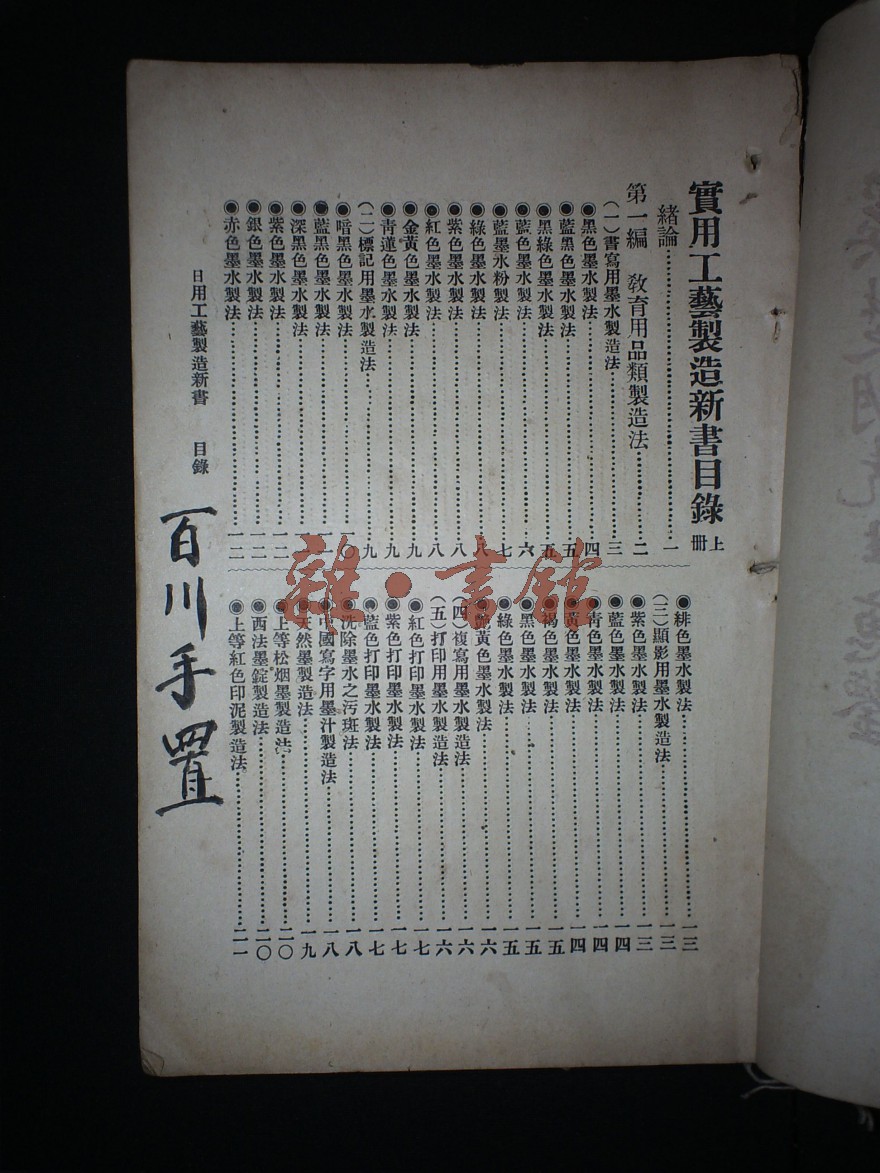 實用工藝製造新書目錄 上册
緒論……一
第一編 教育用品類製造法……二
(一)書寫用墨水製造法……三
◉黑色墨水製法……四
◉藍黑色墨水製法……五
◉黑綠色墨水製法……五
◉藍色墨水製法……六
◉藍墨水粉製法……七
◉綠色墨水製法……八
◉紫色墨水製法……八
◉紅色墨水製法……八
◉金黃色墨水製法……九
◉青蓮色墨水製法……九
(二)標記用墨水製造法……九
◉暗黑色墨水製法……一〇
◉藍黑色墨水製法……一一
◉深黑色墨水製法……一一
◉紫色墨水製法……一二
◉銀色墨水製法……一二
◉赤色墨水製法……一二
◉緋色墨水製法……一三
(三)顯影用墨水製造法……一三
◉紫色墨水製法……一三
◉藍色墨水製法……一四
◉青色墨水製法……一四
◉黄色墨水製法……一四
◉褐色墨水製法……一五
◉黑色墨水製法……一五
◉綠色墨水製法……一五
黃色墨水製法……一六
(四)複寫用墨水製造法……一六
(五)打印用墨水製造法……一六
◉紅色打印墨水製法……一七
◉紫色打印墨水製法……一七
◉藍色打印墨水製法……一七
◉洗除墨水之污斑法……一八
◉中國寫字用墨汁製造法……一八
◉天然墨製造法……一九
◉上等松烟墨製造法……二〇
◉西法墨錠製造法……二〇
◉上等紅色印泥製造法……二一
日用工藝製造新書 目錄
百川手置
雜·書館